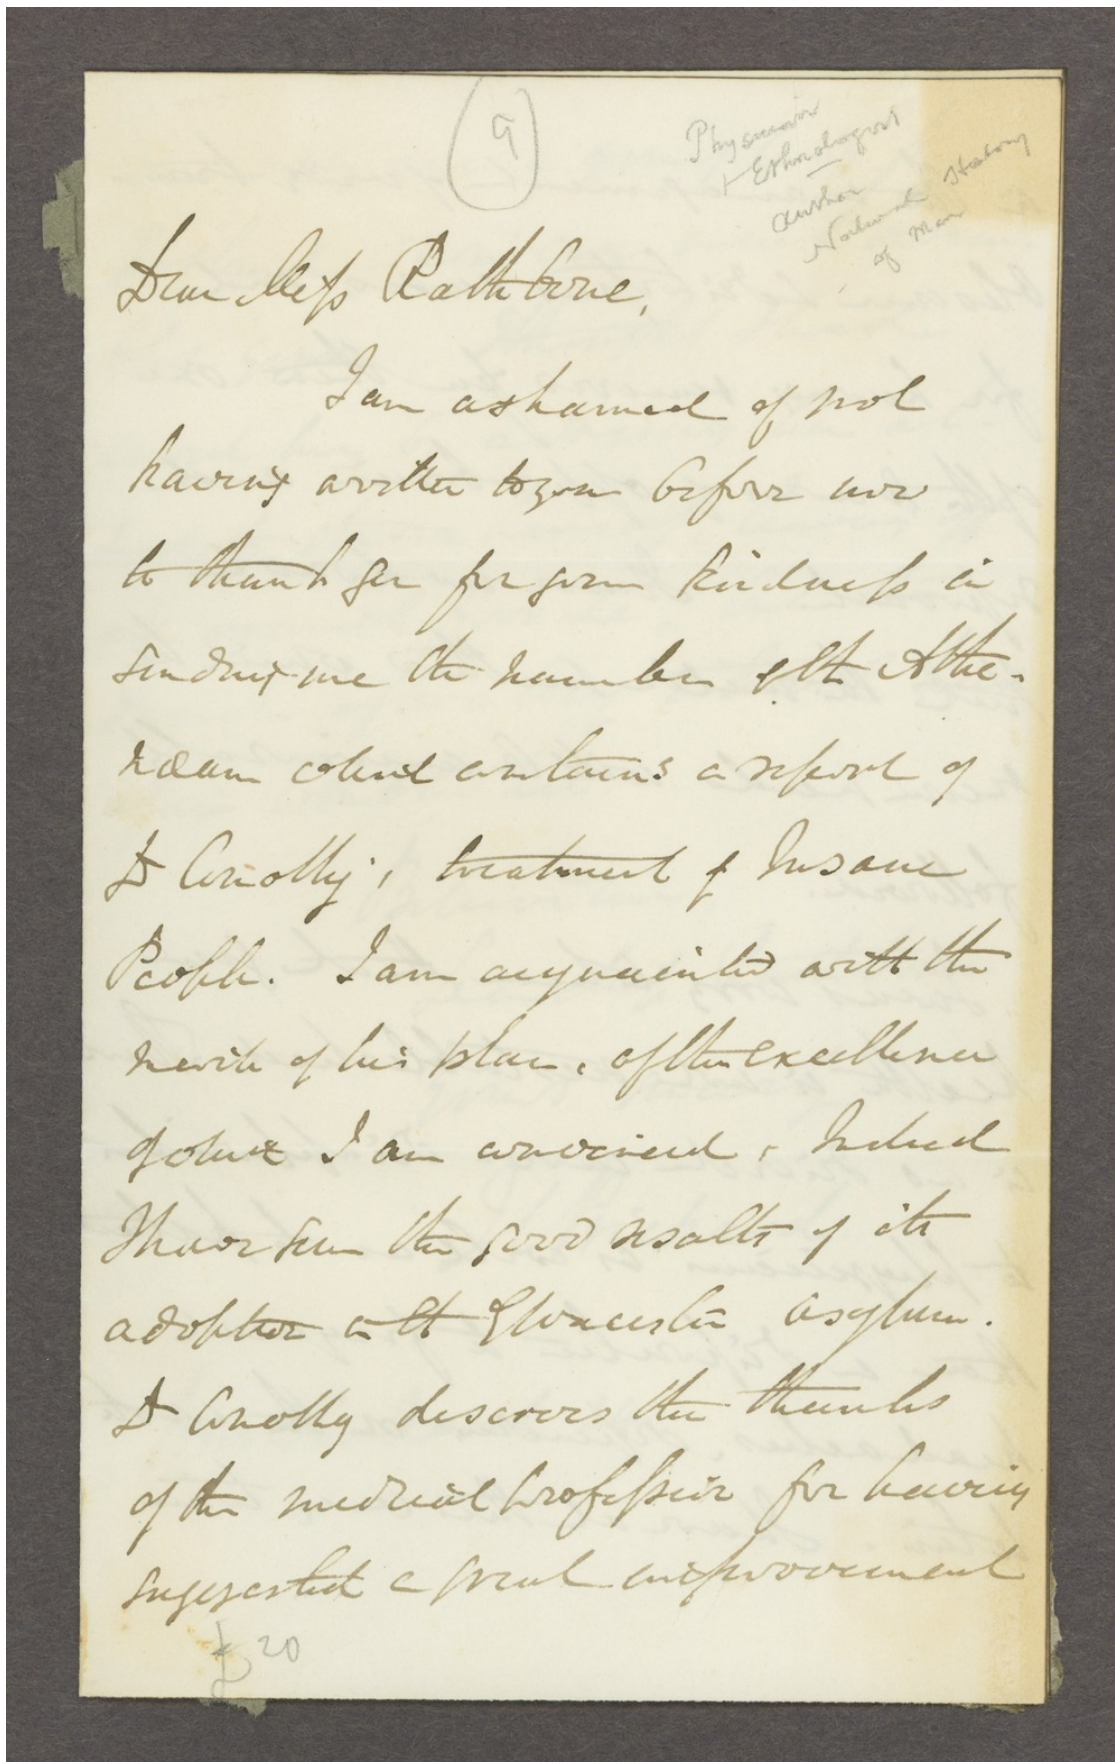 9
Physician
+ Ethnologist
author
Natural History
of Man
Dear Miss Rathbone,
I am ashamed of not
having written to you before now
to thank you for your kindness in
sending me the number of the Athe-
næum which contains a report of
Dr Conolly's treatment of Insane
People. I am acquainted with the
merits of his plan, of the excellence
of which I am convinced, Indeed
I have seen the good results of its
adoption in the Gloucester asylum.
Dr Conolly deserves the thanks
of the medical profession for having
suggested a great improvement
£20